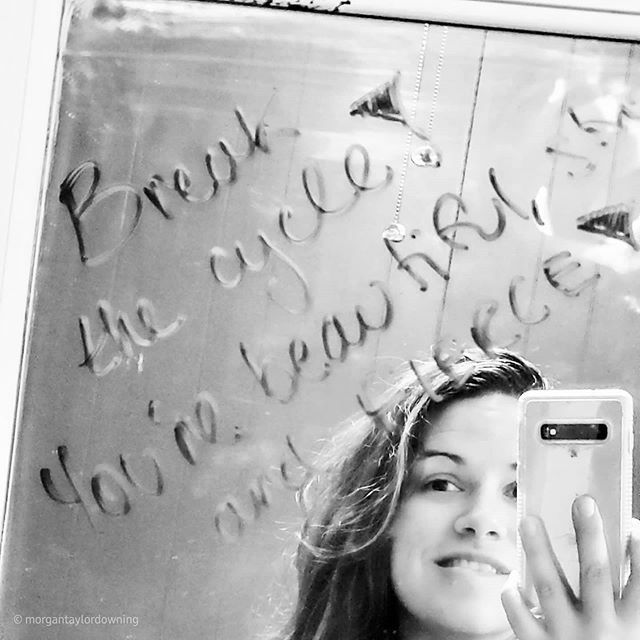 Break
the cycle!
You're beautiful
and FIERCE!
© morgantaylordowning